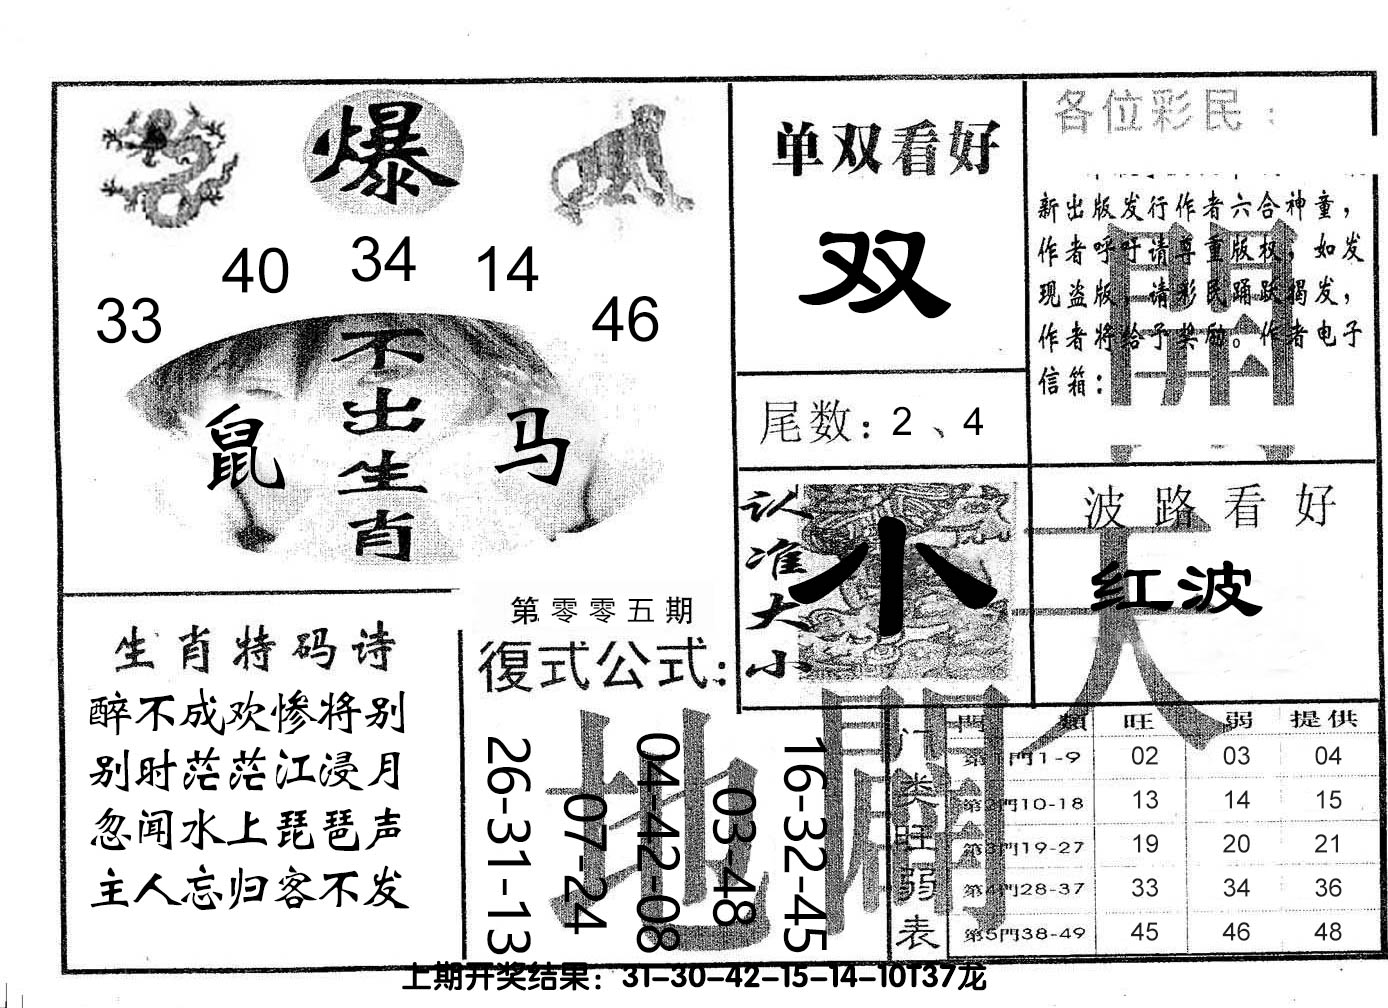 爆
33 40 34 14 46
不出生肖
鼠 马
单双看好
双
尾数：2、4
各位彩民：
新出版发行作者六合神童，
作者呼吁请尊重版权，如发
现盗版，请彩民踊跃揭发，
作者将给予奖励。作者电子
信箱：
認准大小
小
波路看好
红波
生肖特码诗
醉不成欢惨将别
别时茫茫江浸月
忽闻水上琵琶声
主人忘归客不发
第零零五期
復式公式：
26-31-13
07-24
04-42-08
03-48
16-32-45
天
地
開
門类旺弱表
門類 旺 弱 提供
第1門1-9 02 03 04
第2門10-18 13 14 15
第3門19-27 19 20 21
第4門28-37 33 34 36
第5門38-49 45 46 48
上期开奖结果：31-30-42-15-14-10T37龙